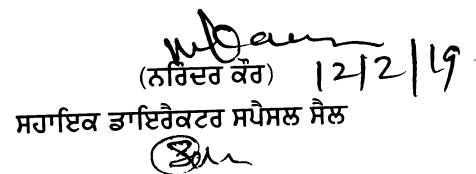 (ਨਰਿੰਦਰ ਕੌਰ) 12/2/19
ਸਹਾਇਕ ਡਾਇਰੈਕਟਰ ਸਪੈਸਲ ਸੈਲ